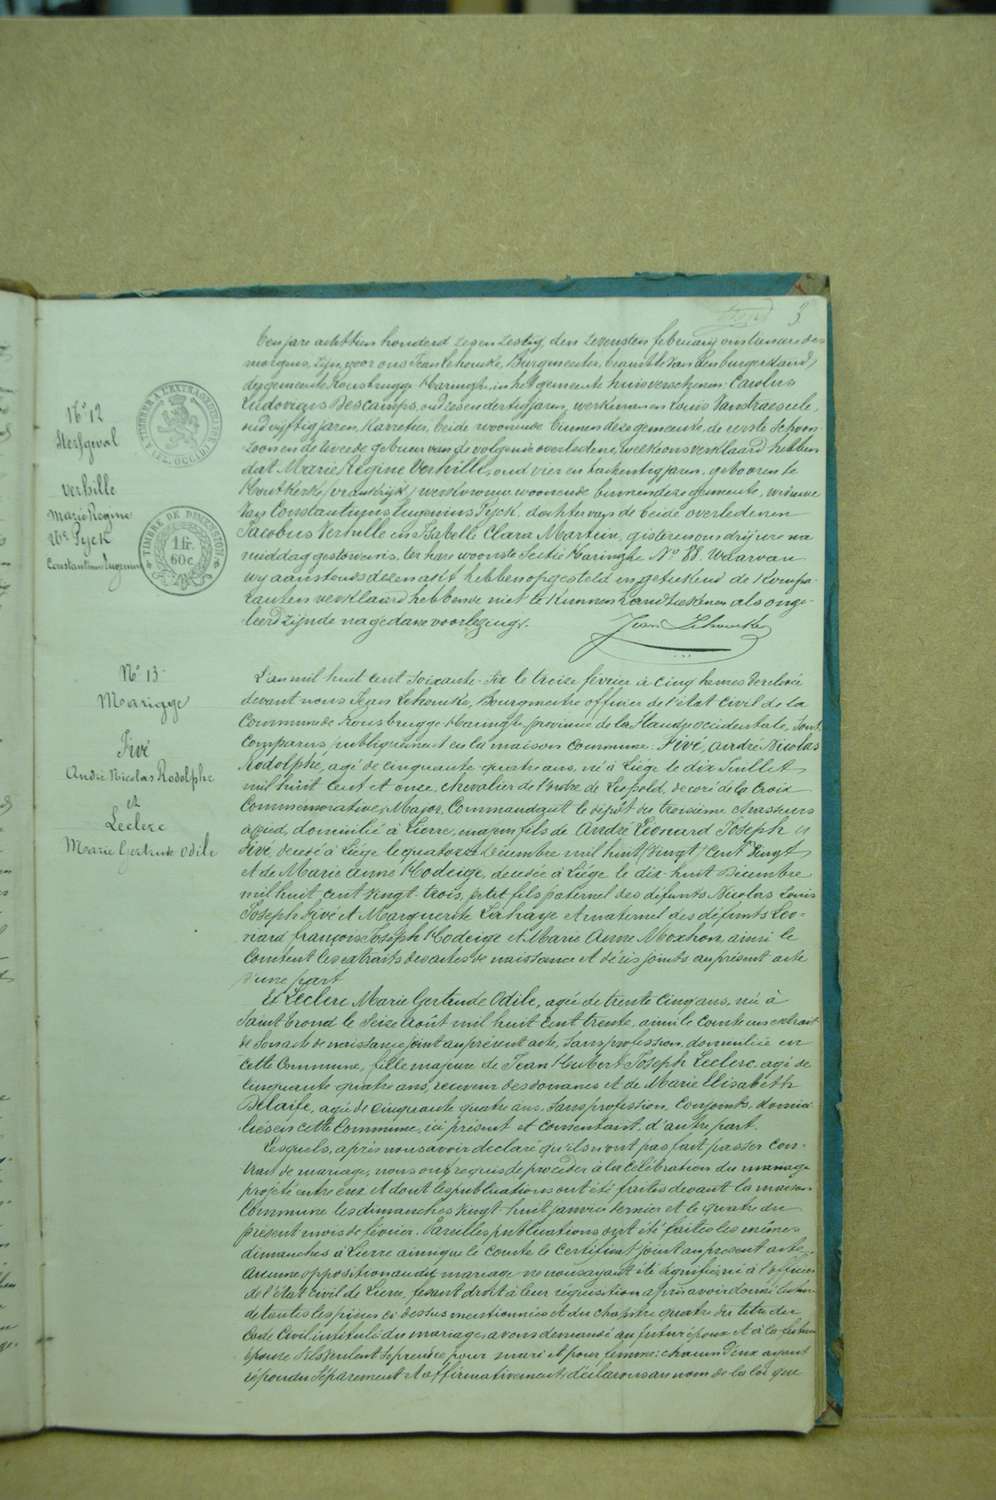 3
N° 12
Sterfgeval
Verhille
Marie Regine
We Pyck
Constantinus Eugenius
TIMBRE DE DIMENSION
1 fr.
60 c.
Ten jare achttien honderd zes en zestig den zevensten february ons ten ure des
morgens, zijn voor ons Jean Lehoucke, Burgmeester, beambte van den burgerstand,
der gemeente Rousbrugge-Haringhe, in het gemeente huis verschenen Carolus
Ludovicus Descamps, oud zes en dertig jaren, werkman en Louis Vandraeseele,
oud vyftig jaren, Karretier, beide woonende binnen deze gemeente, de eerste schoon
zoon en de tweede gebuur van de volgende overledene, welke ons verklaard hebben
dat Marie Régine Verhille, oud vier en tachentig jaren, gebooren te
Houtkerke (vrankrijk) werkvrouw woonende binnen deze gemeente, weduwe
van Constantinus Eugenius Pyck, dochter van de beide overledenen
Jacobus Verhille en Isabelle Clara Martein, gisteren ons drij ure na
middag gestorven is, ten hare woonste Sectie Haringhe N° 88. Waarvan
wy aanstonds dezen akt hebben opgesteld en geteekend de Kompa-
ranten verklaard hebbende niet te kunnen handteekenen als onge-
leerd zijnde na gedane voorlezing.
Jean Lehoucke
N° 13
Mariage
Fivé
André Nicolas Rodolphe
et
Leclerc
Marie Gertrude Odile
L'an mil huit cent soixante-six le treize février à cinq heures de relevée
devant nous Jean Lehoucke, Bourgmestre officier de l'état civil de la
Commune de Rousbrugge-Haringhe, province de la Flandre occidentale, sont
comparus publiquement en la maison commune. Fivé, André Nicolas
Rodolphe, agé de cinquante-quatre ans, né à Liége le dix Juillet
mil huit cent et onze, chevalier de l'ordre de Léopold, décoré de la Croix
Commémorative, Major, Commandant le dépôt du troisième chasseurs
à pied, domicilié à Lierre, majeur fils de André Léonard Joseph
Fivé, décédé à Liége le quatorze Décembre mil huit (vingt) cent vingt
et de Marie Anne Hodeige, décedée à Liége le dix-huit Décembre
mil huit cent vingt-trois, petit fils paternel des défunts Nicolas Louis
Joseph Fivé et Marguerite Lahaye et maternel des défunts Leo-
nard françois Joseph Hodeige et Marie Anne Moxhon, ainsi le
constent les extraits des actes de naissance et décès joints au présent acte
d'une part
Et Leclerc Marie Gertrude Odile, agée de trente cinq ans, née à
Saint Trond le seize août mil huit cent trente, ainsi le conste un extrait
de son acte de naissance joint au présent acte, sans profession, domiciliée en
cette Commune, fille majeure de Jean Hubert Joseph Leclerc, agé de
cinquante quatre ans, receveur des douanes et de Marie Elisabeth
Delaite, agée de cinquante quatre ans, sans profession, conjoints, domici-
liés en cette Commune, ici présent et consentant, d'autre part.
Lesquels, après nous avoir declaré qu'ils n'ont pas fait passer con-
trat de mariage, nous ont requis de procéder à la célébration du mariage
projeté entre eux et dont les publications ont été faites devant la maison
Commune les dimanches vingt-huit janvier dernier et le quatre du
présent mois de février. Pareilles publications ont été faites les mêmes
dimanches à Lierre ainsi que le conste le certificat joint au present acte.
Aucune opposition au dit mariage ne nous ayant été signifiée ni à l'officier
de l'état civil de Lierre, fesant droit à leur réquisition après avoir donné lecture
de toutes les pièces ci dessus mentionnées et du chapitre quatre du titre du
Code Civil intitulé du mariage, avons demandé au futur époux et à la future
épouse s'ils veulent se prendre pour mari et pour femme: chacun d'eux ayant
répondu séparement et affirmativement, déclarons au nom de la loi que